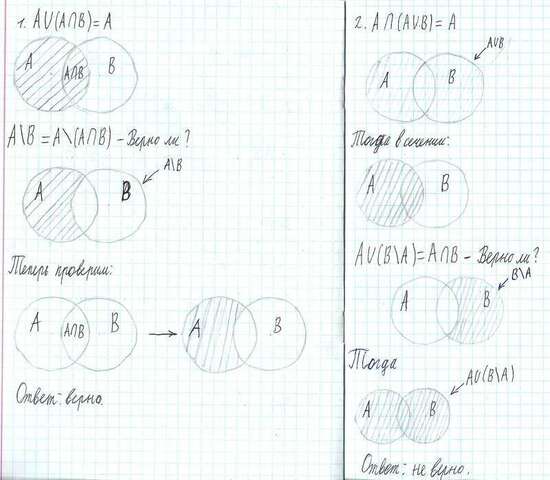 1. A∪(A∩B)=A
A
A∩B
B
A\B = A\(A∩B) – Верно ли?
A
B
A\B
Теперь проверим:
A
A∩B
B
A
B
Ответ: верно.
2. A∩(A∪B)= A
A∪B
A
B
Тогда в сечении:
A
B
A∪(B\A)=A∩B – Верно ли?
B\A
A
B
Тогда
A∪(B\A)
A
B
Ответ: не верно.